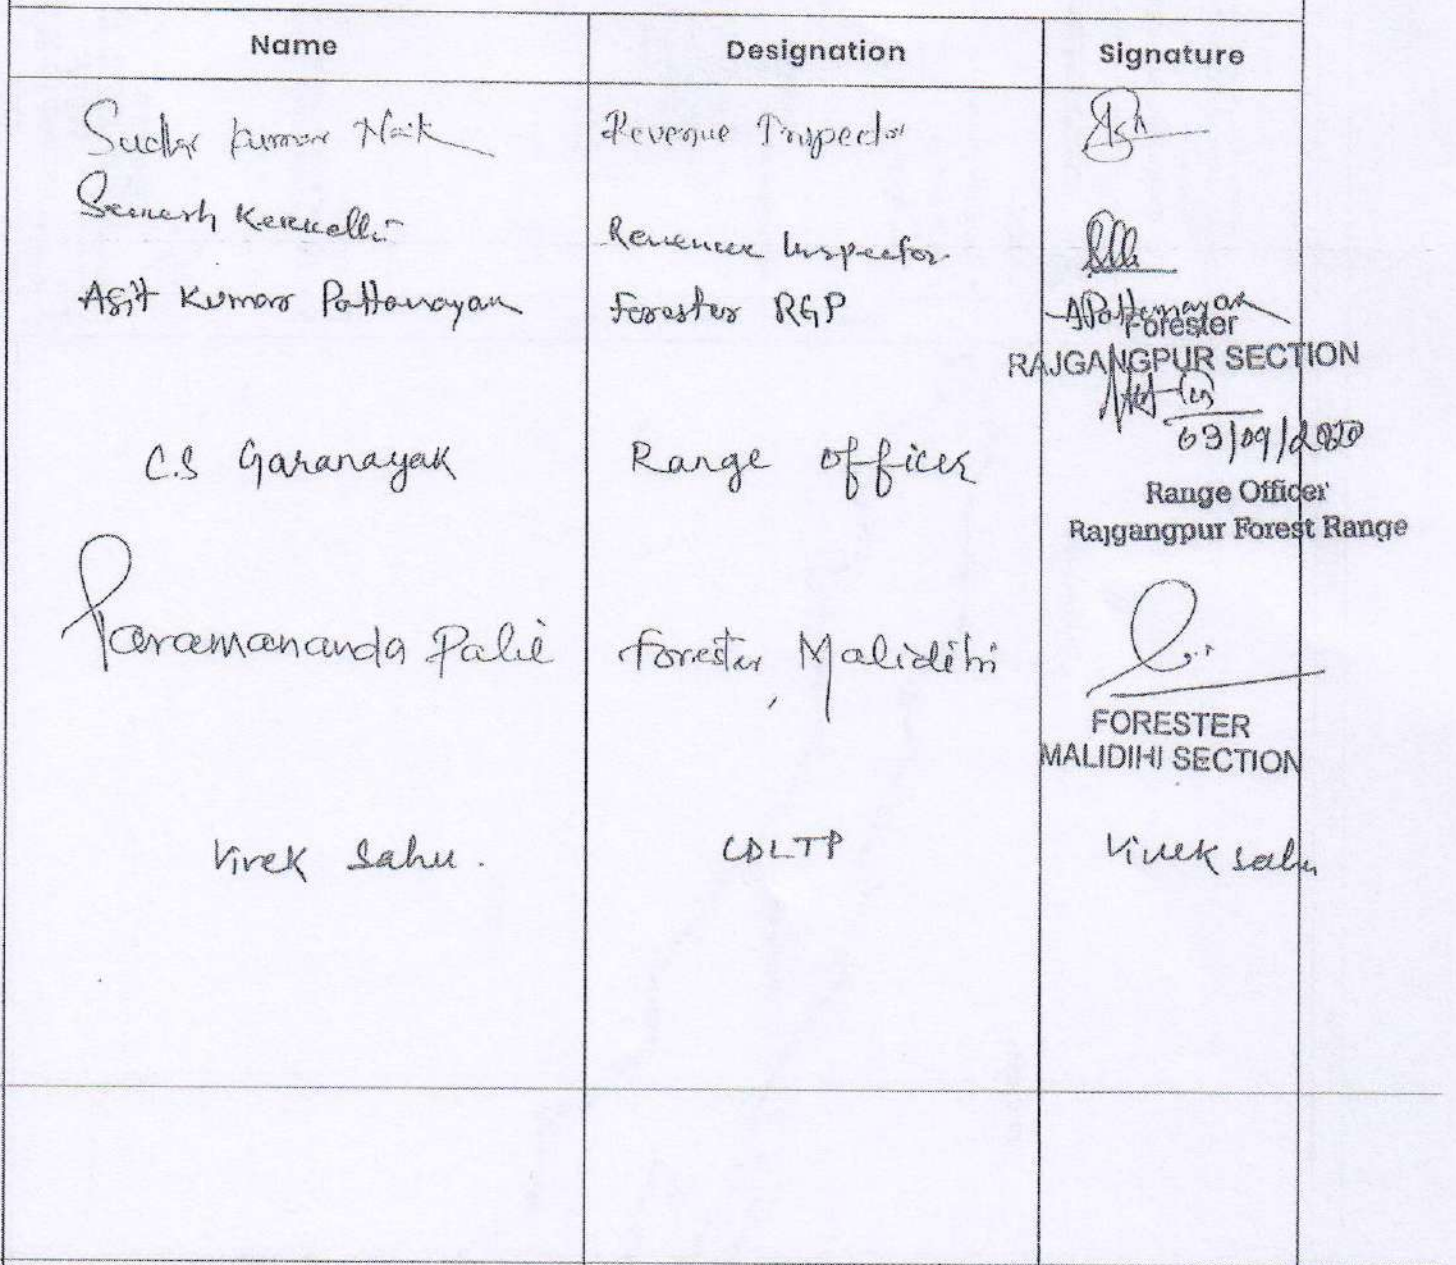 Name Designation Signature
Kumar Naik Revenue Inspector
Revenue Inspector
Asit Kumar Pattanayak Forester RGP APattanayak
Forester
RAJGANGPUR SECTION
03/09/2020
C.S Garanayak Range Officer
Range Officer
Rajgangpur Forest Range
Paramananda Forester, Malidihi
FORESTER
MALIDIHI SECTION
Vivek Sahu. CDLTP Vivek sahu